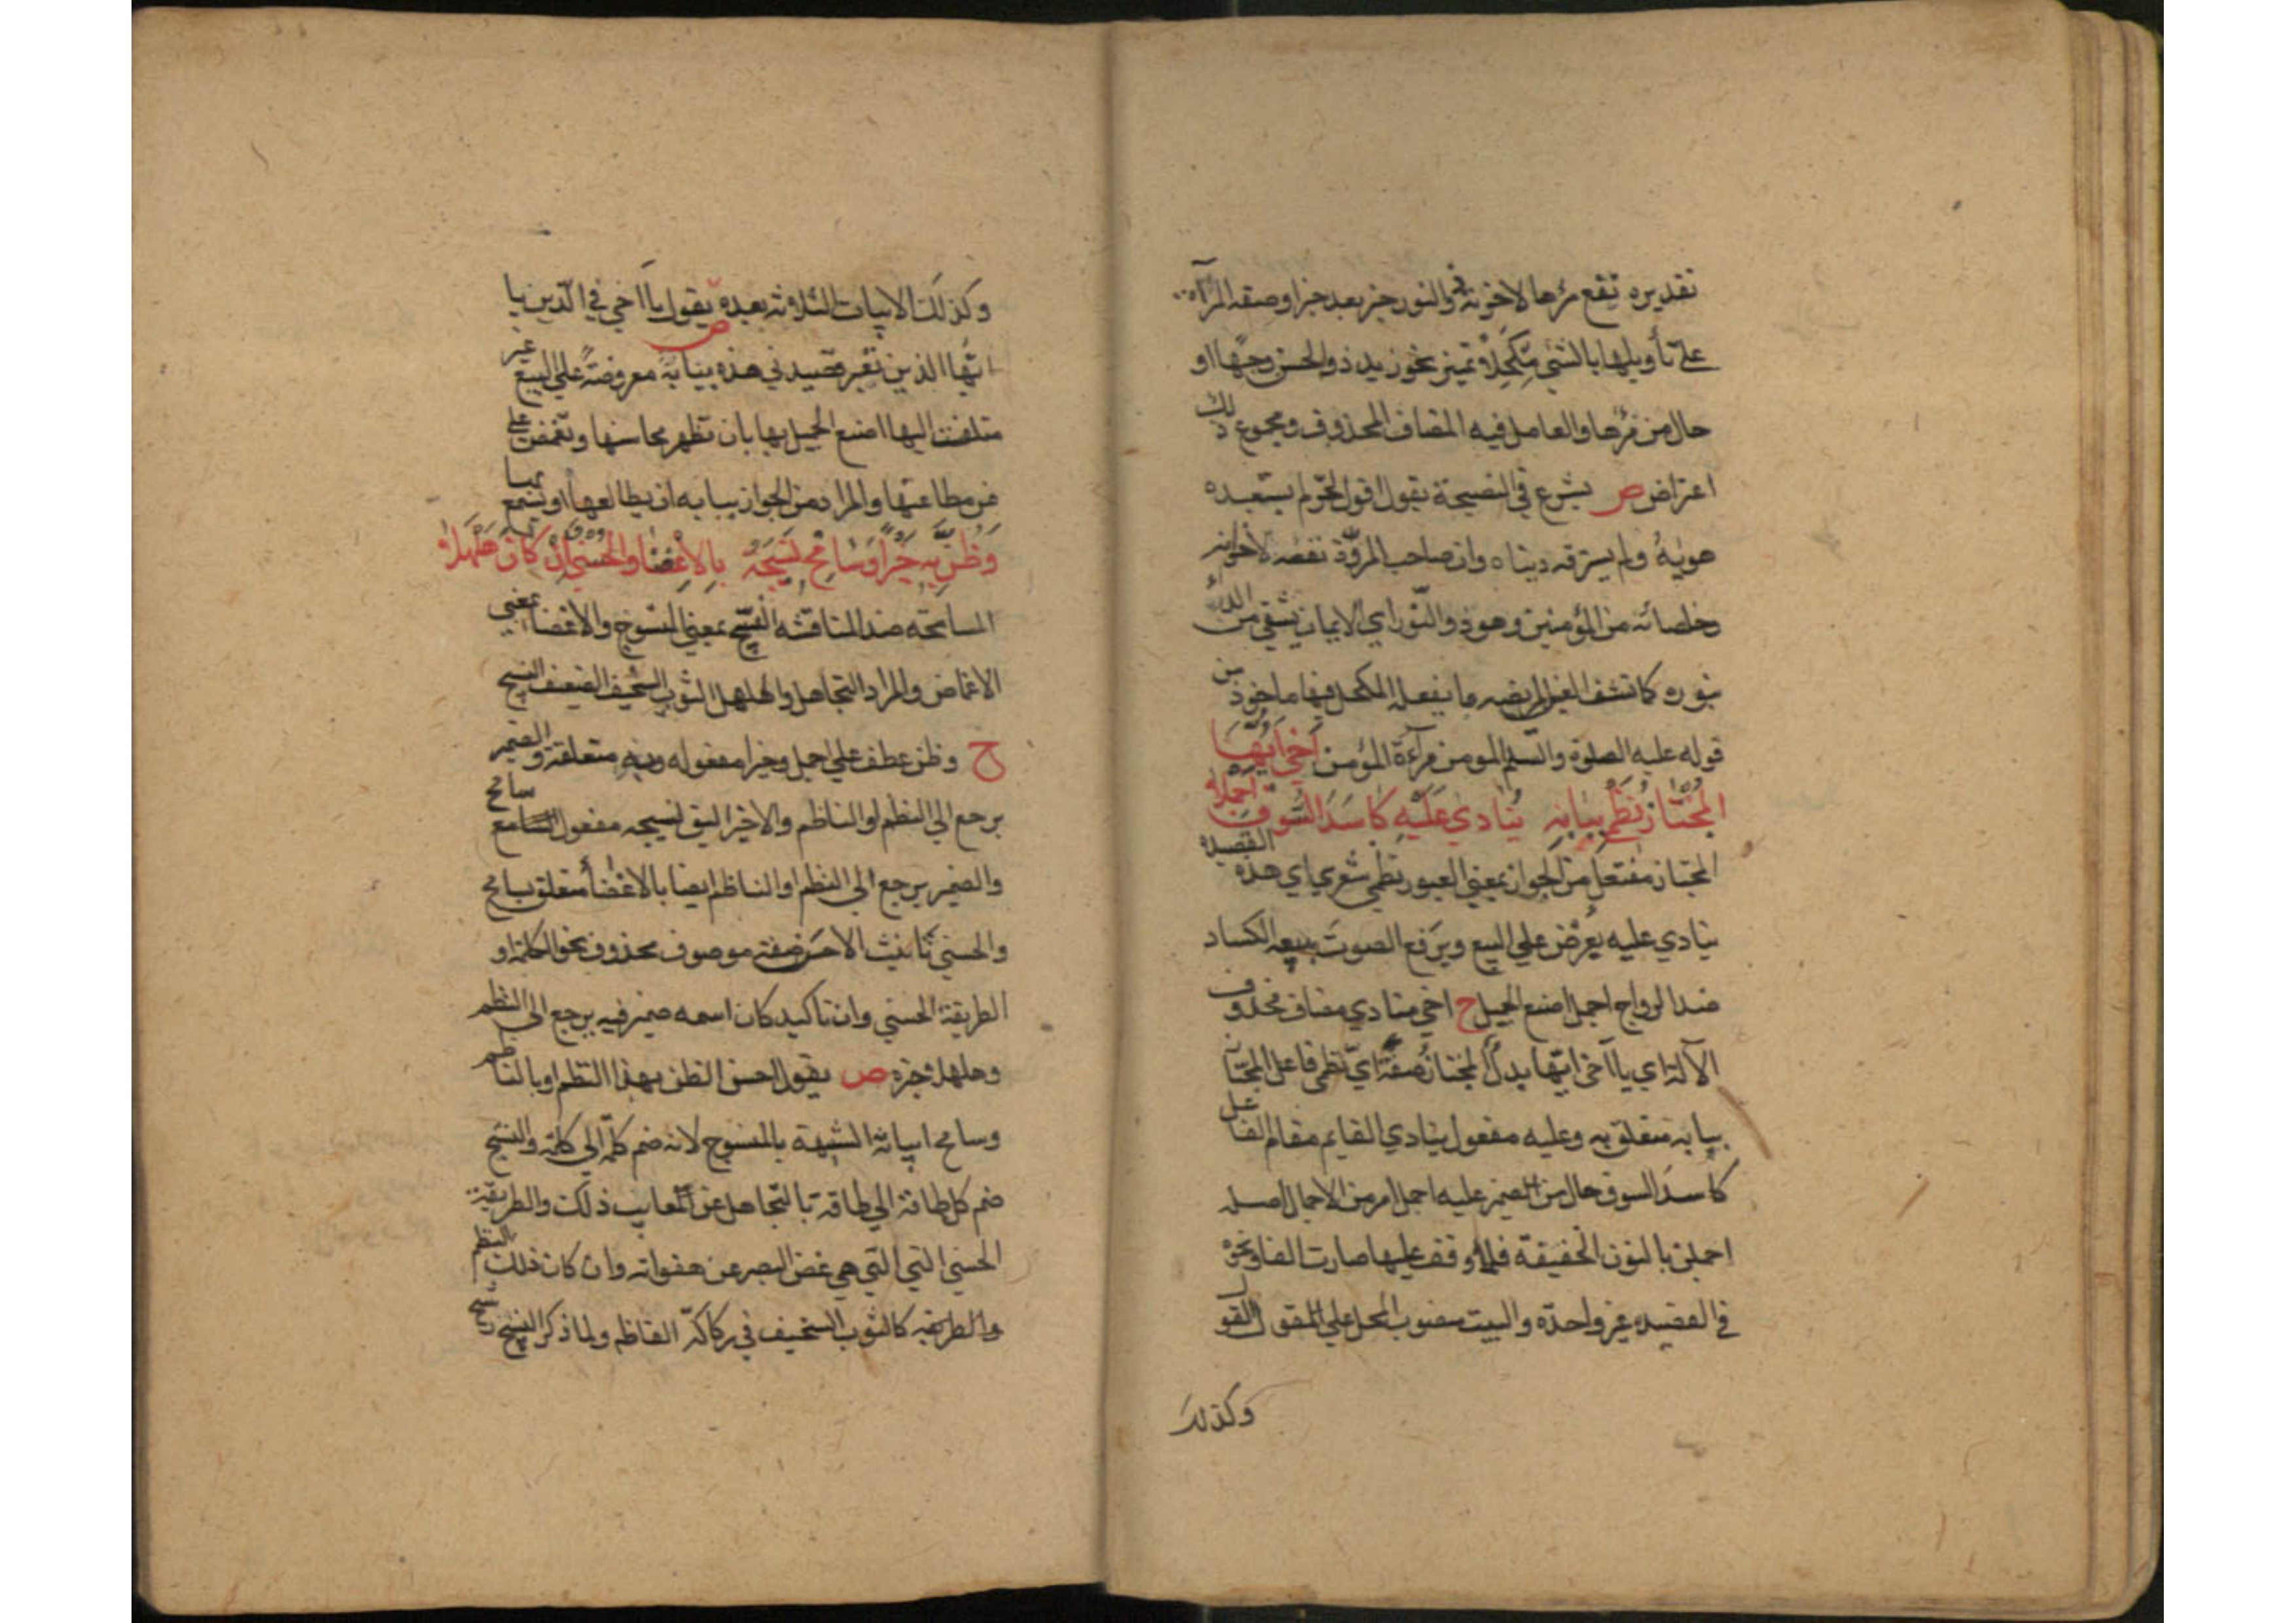 تقديره تقع مرءها لاخوته والنور خبر بعد خبر او صفة المرآة
على تأويلها بالشئ مكحلا تميز نحو زيد ذو الحسن وجها او
حال من مرءها والعامل فيه المضاف المحذوف ومجموع ذلك
اعتراض ص يشرع في النصيحة يقول اقول لحر لم يستعبده
هويه ولم يسترقه دنياه وان صاحب المروة نفعه لاخوانه
وخلصائه من المؤمنين وهو ذو النور اي الايمان يشفي من الداء
بنوره كما تشف العين المريضه ما يفعله المكحل فيها ماخوذ من
قوله عليه الصلوة والسلم المومن مرآءة المؤمن اخي ايها
المجتاز نظمي ببابه ينادي عليه كاسد السوق اجملا
المجتاز مفتعل من الجواز بمعني العبور نظمي شعري اي هذه القصيده
ينادي عليه يعرض علي البيع ويرفع الصوت ببيعه الكساد
ضد الرواج اجمل اصنع الجميل ح اخي منادي مضاف محذوف
الآلة اي يا اخي ايها بدل المجتاز صفة اي نظمي فاعل المجتاز
ببابه متعلق به وعليه مفعول ينادي القايم مقام الفاعل
كاسد السوق حال من الضمير عليه اجمل امر من الاجمال اصله
اجملن بالنون الخفيفة فلما وقف عليها صارت الفا ونحوه
في القصيده غير واحدة والبيت منصوب المحل علي المقول القول
وكذلك
وكذلك الابيات الثلاثة بعده ص يقول يا اخي في الدين يا
ايها الذين تعبر قصيدتي هذه ببابه معروضة علي البيع غير
متلفت اليها اصنع الجميل بها بان تظهر محاسنها وتغمض علي
من مطاعنها والمراد من الجواز ببابه ان يطالعها او يسمع بها
وظن به خيرا وسامح نسيجه بالاغضاء والحسني وان كان هلهلا
المسامحة ضد المناقشه النسيج بمعني المنسوج والاغضاء بمعني
الاغماض والمراد التجاهل والهلهل الثوب السخيف الضعيف النسج
ح وظن عطف علي اجمل وخيرا مفعوله وبه متعلقة والضمير
يرجع الي النظم او الناظم والاخير اليق نسيجه مفعول سامح
والضمير يرجع الي النظم او الناظم ايضا بالاغضاء متعلق بسامح
والحسني تانيث الاحسن صفة موصوف محذوف نحو الكلمة او
الطريقة الحسني وان تاكيد كان اسمه ضمير فيه يرجع الي النظم
وهلهلا خبره ص يقول احسن الظن بهذا النظم او بالناظم
وسامح ابياته الشبهة بالمنسوج لانه ضم كلمة الي كلمة والنسج
ضم كل طاقة الي طاقة بالتجاهل عن المعايب ذلك والطريقة
الحسني التي التي هي غض البصر عن هفواته وان كان ذلك النظم
والطريقه كالثوب السخيف في ركاكة الفاظه ولما ذكر النسج